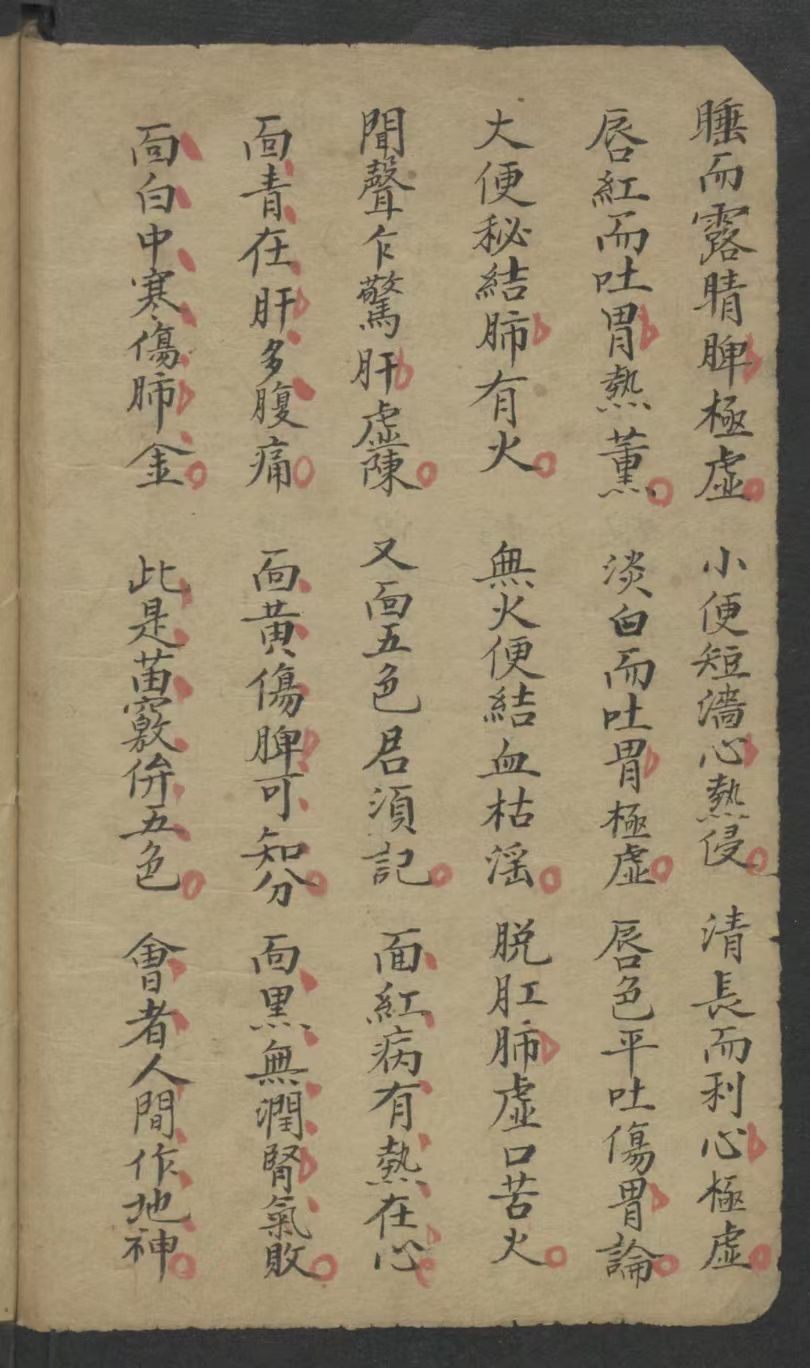 睡而露睛脾極虛 小便短濇心熱侵 清長而利心極虛
唇紅而吐胃熱薰 淡白而吐胃極虛 唇色平吐傷胃論
大便秘結肺有火 無火便結血枯淫 脱肛肺虛口苦火
聞聲乍驚肝虛陳 又面五色君須記 面紅病有熱在心
面青在肝多腹痛 面黃傷脾可知分 面黑無潤腎氣敗
面白中寒傷肺金 此是苗竅併五色 會者人間作地神